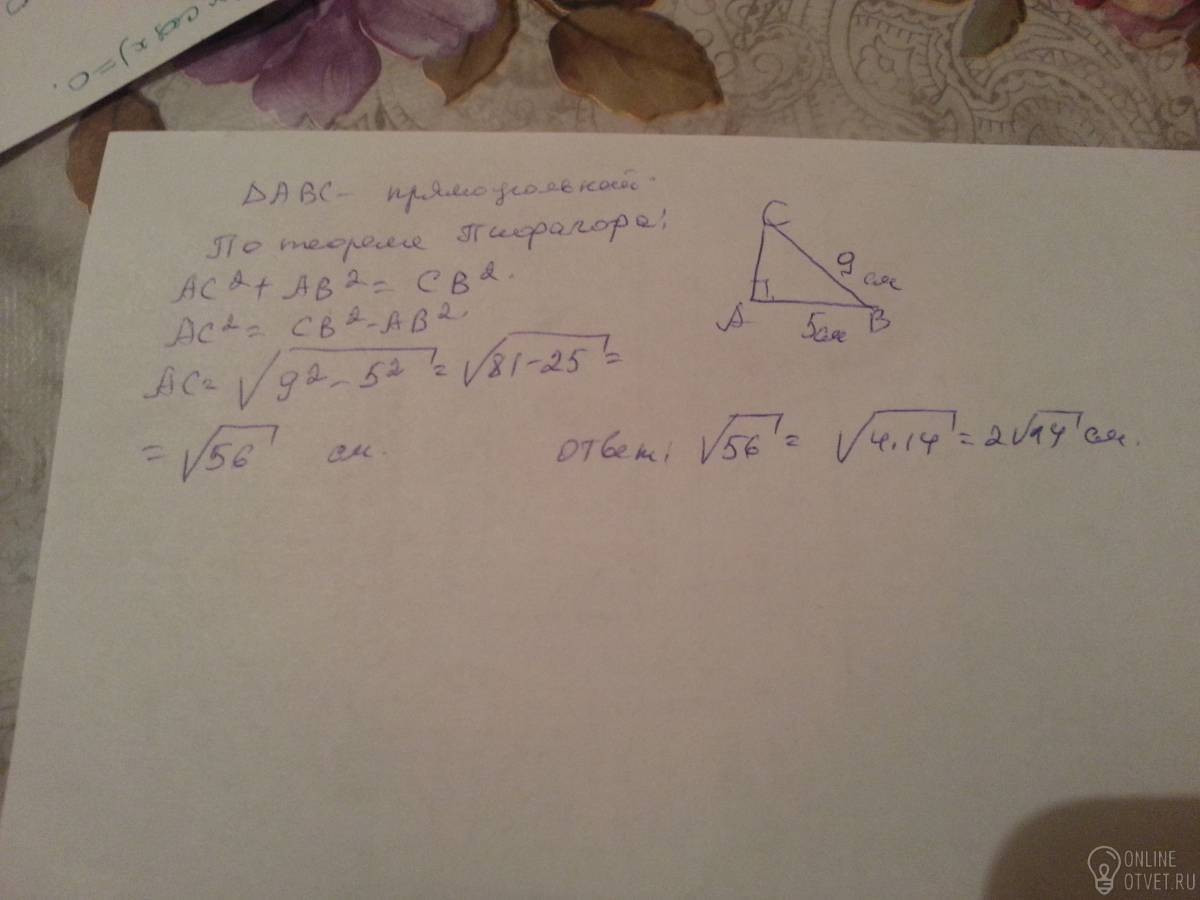 cosx)=0.
ΔABC - прямоугольный.
По теореме Пифагора:
AC² + AB² = CB².
AC² = CB² - AB².
AC = √9² - 5² = √81 - 25 =
= √56 см.
C
9 см
A
5см
B
Ответ: √56 = √4·14 = 2√14 см.
ONLINE
OTVET.RU